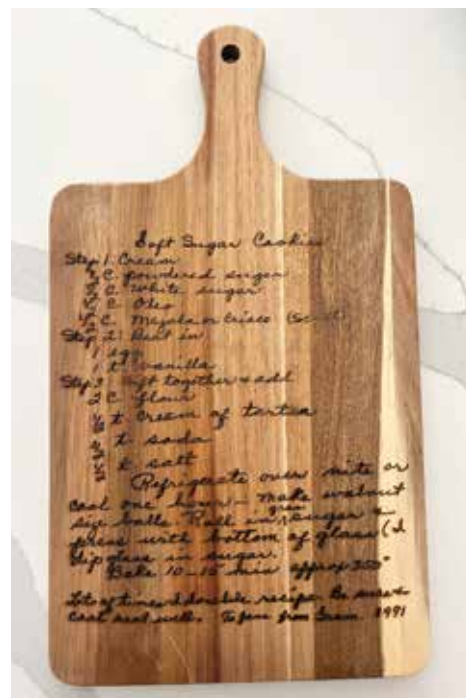 Soft Sugar Cookies
Step 1. Cream
C. powdered sugar
C. White sugar
C. Oleo
C. Mazola or Crisco
Step 2. Beat in
1 egg
1 t. vanilla
Step 3. Sift together & add
2 C. flour
t. Cream of tarter
t. soda
t. salt
Refrigerate over nite or
cool one hour - make walnut
size balls. Roll in sugar &
press with bottom of glass (I
dip glass in sugar.
Bake 10-15 min approx 350°
Lots of times I double recipe. Be sure &
cool real well. To from Gram. 1991